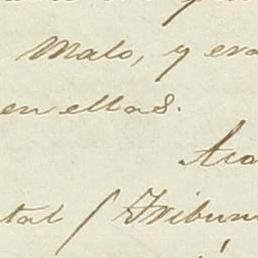 Malo, y era
en ellas.
Aca
tal / Tribun